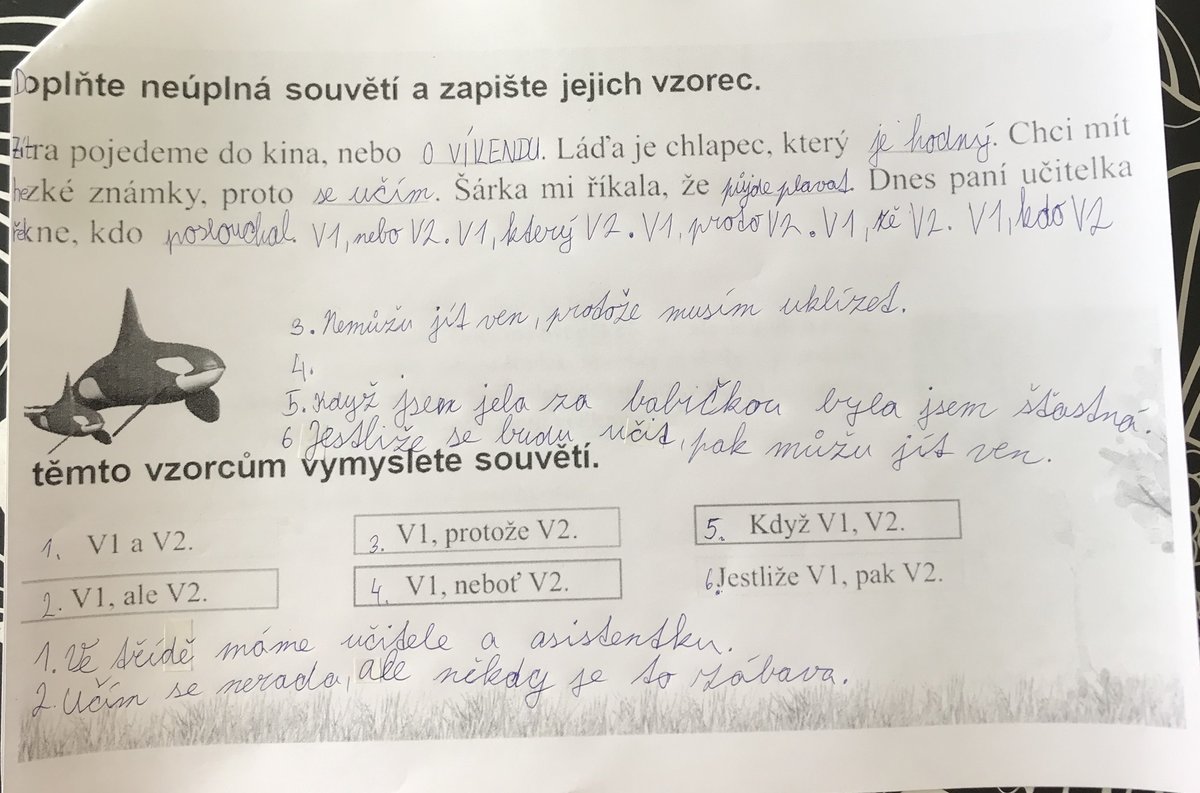 Doplňte neúplná souvětí a zapište jejich vzorec.
Zítra pojedeme do kina, nebo O VÍKENDU. Láďa je chlapec, který je hodný. Chci mít
hezké známky, proto se učím. Šárka mi říkala, že půjde plavat. Dnes paní učitelka
řekne, kdo poslouchal. V1, nebo V2. V1, který V2. V1, proto V2. V1, že V2. V1, kdo V2
3. Nemůžu jít ven, protože musím uklízet.
4.
5. Když jsem jela za babičkou byla jsem šťastná.
6 Jestliže se budu učit, pak můžu jít ven.
těmto vzorcům vymyslete souvětí.
1. V1 a V2. 3. V1, protože V2. 5. Když V1, V2.
2. V1, ale V2. 4. V1, neboť V2. 6. Jestliže V1, pak V2.
1. Ve třídě máme učitele a asistentku.
2. Učím se nerada, ale někdy je to zábava.